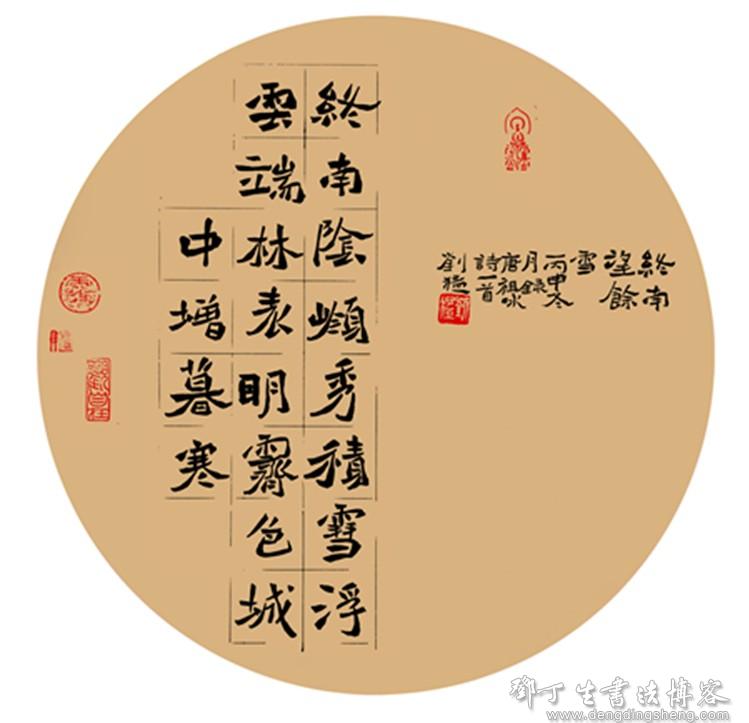 終南
望餘
雪
丙申冬
月錄
唐祖咏
詩一首
劉
終南陰嶺秀積雪浮
雲端林表明霽色城
中增暮寒
鄧丁生書法博客
www.dengdingsheng.com